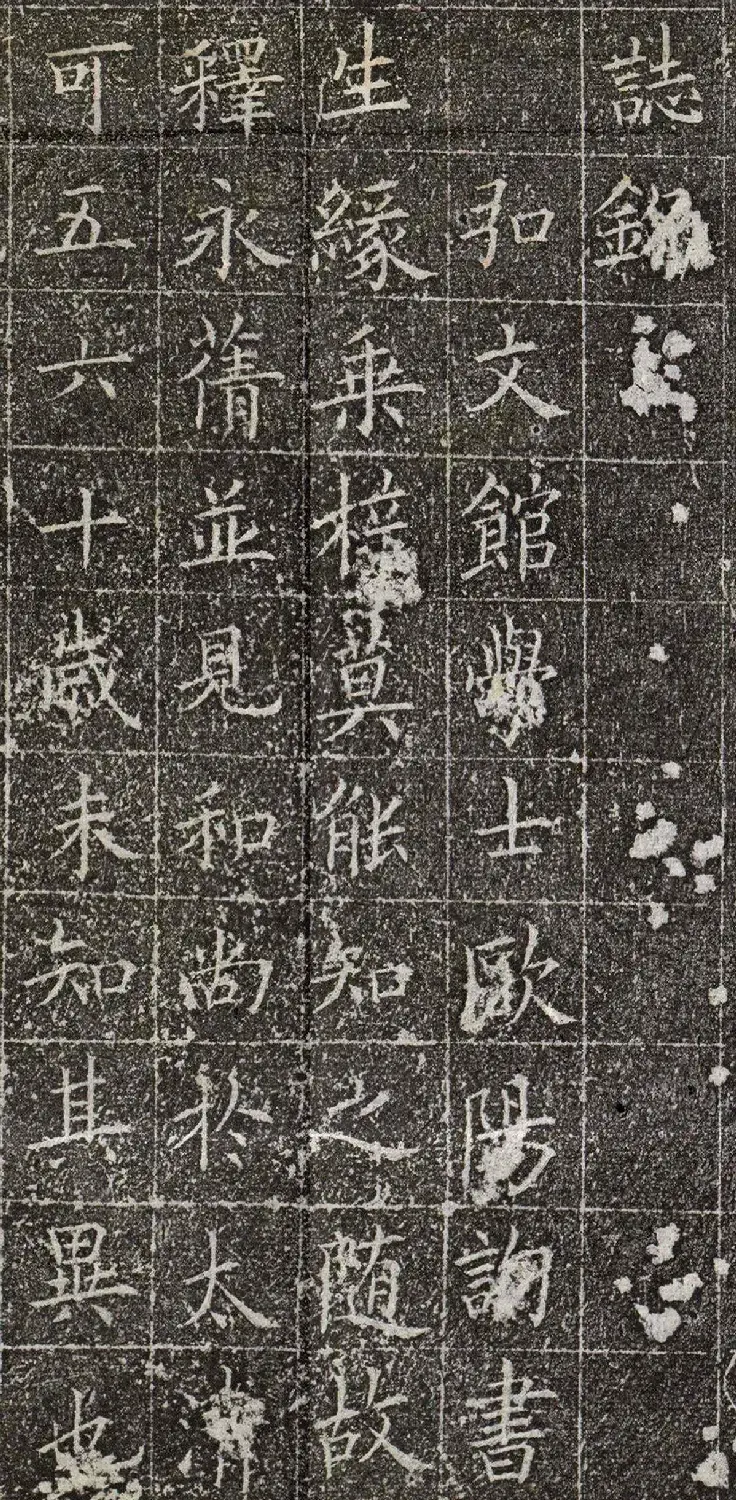 誌銘
弘文館學士歐陽詢書
生緣桒梓莫能知之随故
釋永蒨並見和尚於太清
可五六十歲未知其異也